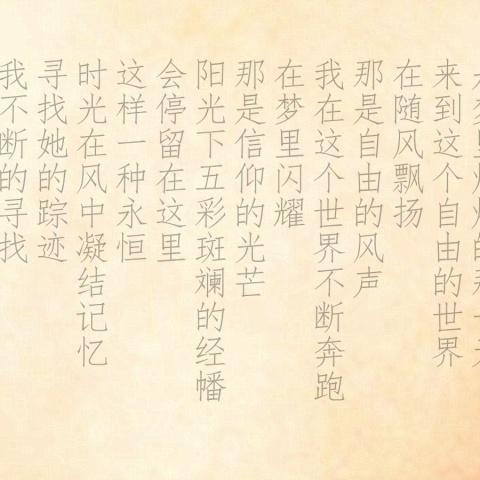 我不断的寻找
寻找她的踪迹
时光在风中凝结记忆
这样一种永恒
会停留在这里
阳光下五彩斑斓的经幡
那是信仰的光芒
在梦里闪耀
我在这个世界不断奔跑
那是自由的风声
在随风飘扬
来到这个自由的世界